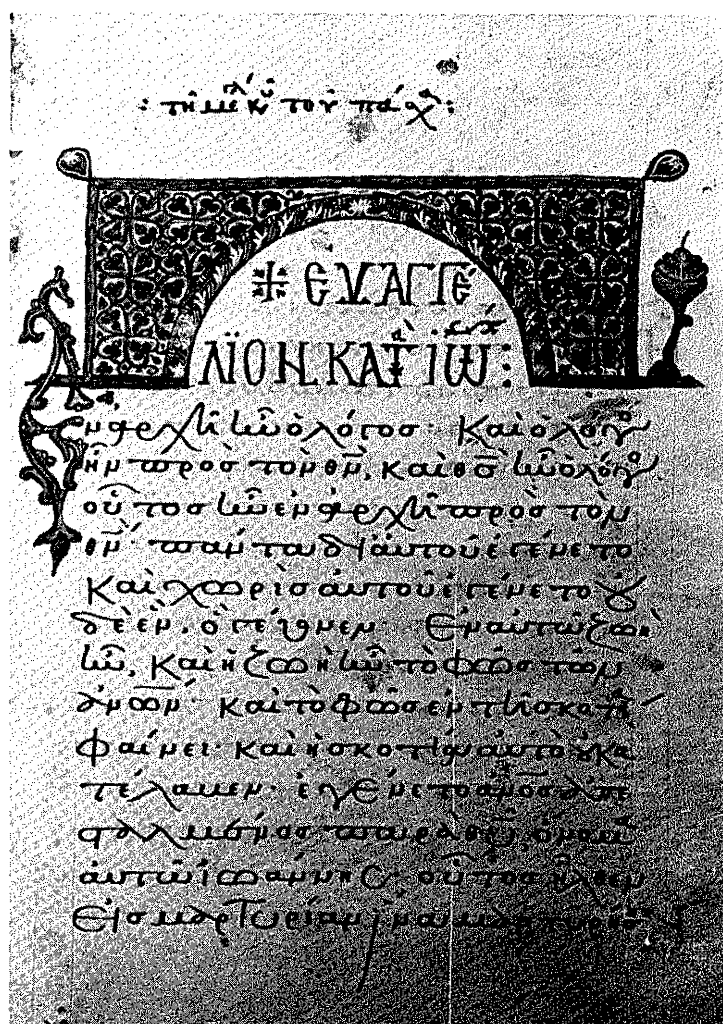 : τῆ μεγ κυ τοῦ πάσχα :
+ ΕΥΑΓΓΕ
ΛΙΟΝ ΚΑΤ ΙΩ :
ἐν ἀρχῆ ἦν ὁ λόγοσ · Καὶ ὁ λόγοσ
ἦν πρὸσ τὸν θν, καὶ θσ ἦν ὁ λόγοσ
οὗτοσ ἦν ἐν ἀρχῆ πρὸσ τὸν
θν · πάντα δι αὐτοῦ ἐγένετο
Καὶ χωρὶσ αὐτοῦ ἐγένετο οὐ
δὲ ἕν, ὃ γέγονεν · Ἐν αὐτῶ ζωὴ
ἦν, Καὶ ἡ ζωὴ ἦν τὸ φῶσ τῶν
ἀνων · Καὶ τὸ φῶσ ἐν τῆ σκοτί
φαίνει · καὶ ἡ σκοτία αὐτὸ οὐ κα
τέλαβεν · ἐγένετο ἀνοσ ἀπε
σταλμένοσ παρὰ θυ, ὄνομα
αὐτῶ ἰωάννησ, οὗτοσ ἦλθεν
Εἰσ μαρτυρίαν, ἵνα μαρτυρήσ